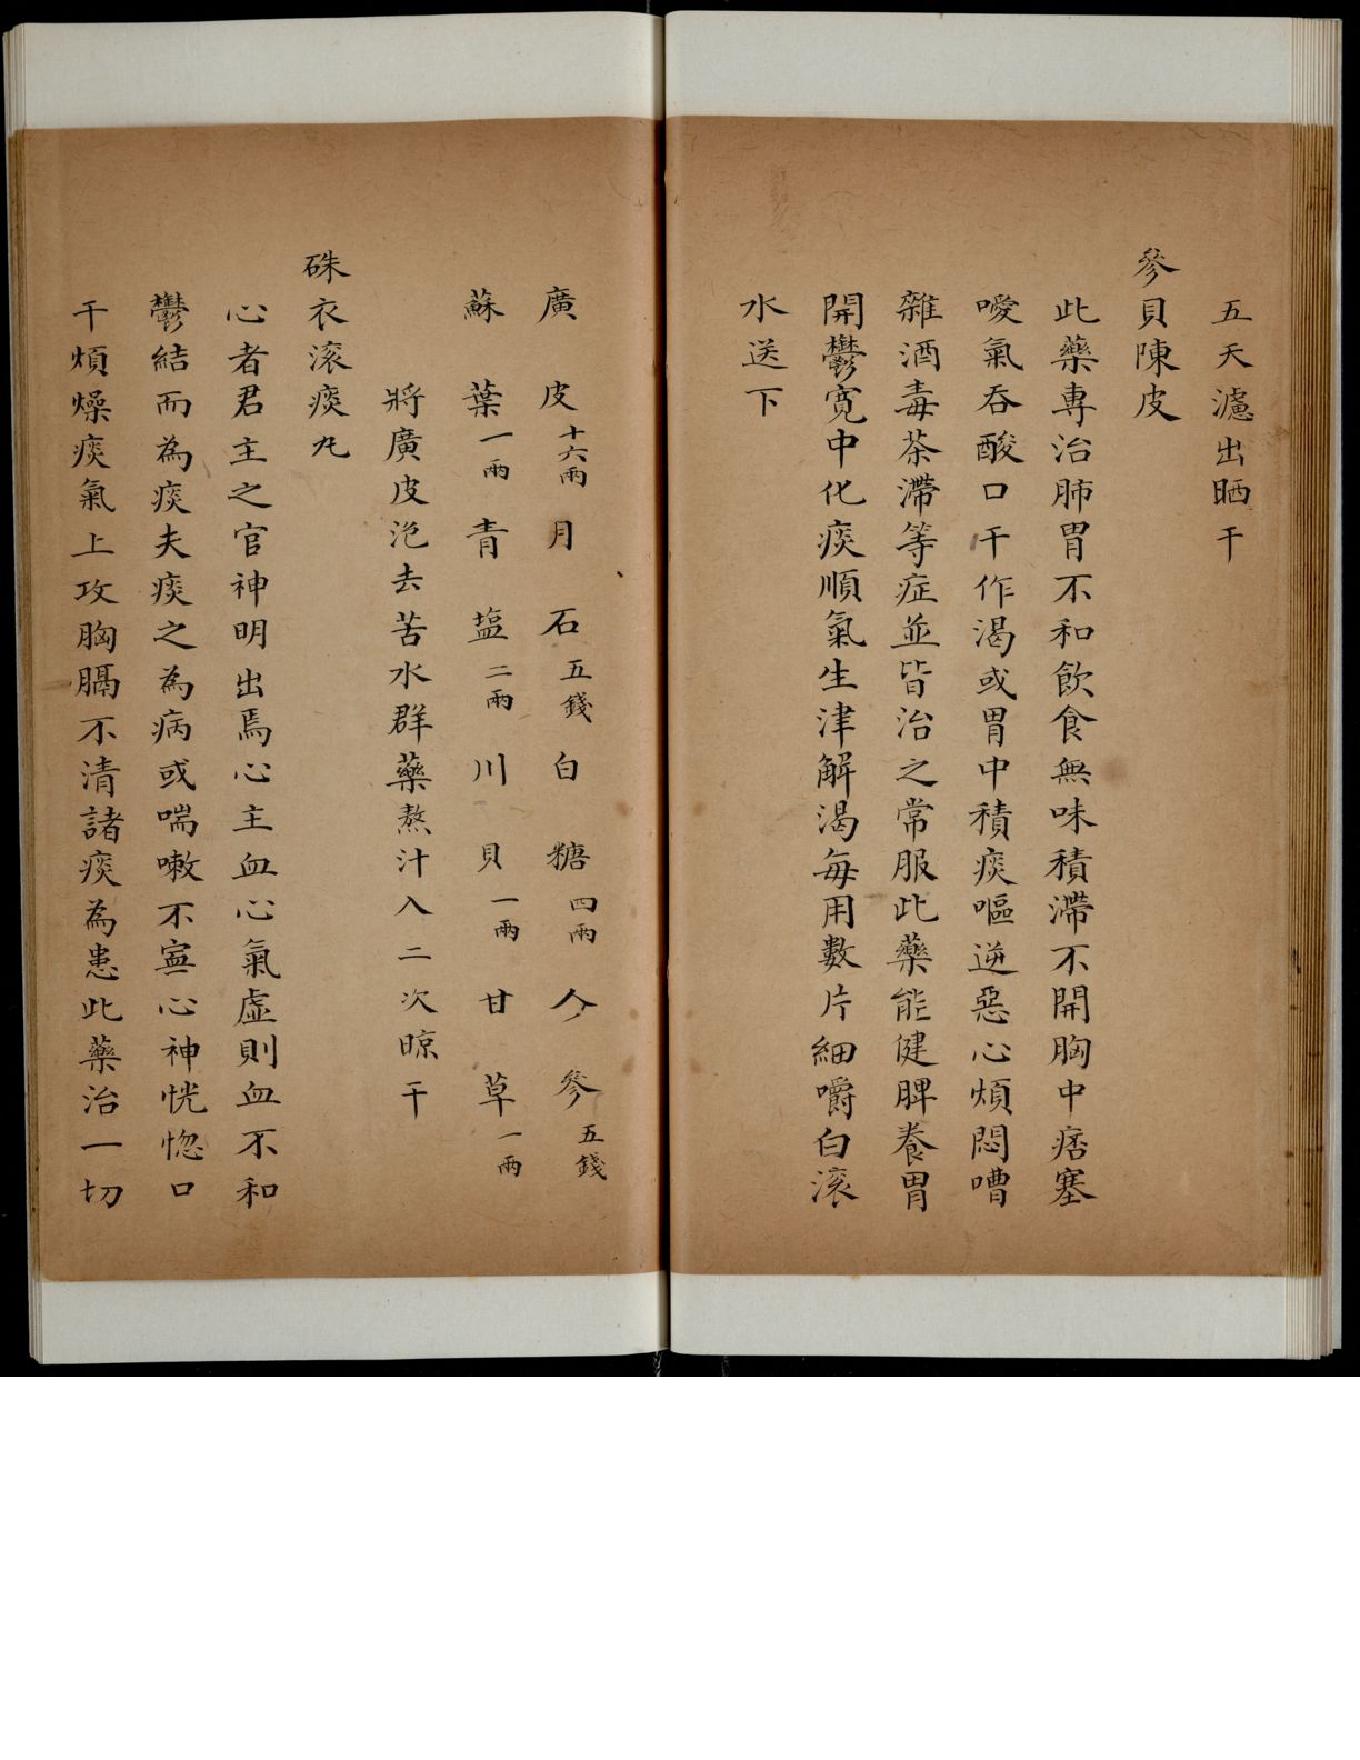 五天濾出晒干
參貝陳皮
此藥專治肺胃不和飲食無味積滯不開胸中痞塞
噯氣吞酸口干作渴或胃中積痰嘔逆惡心煩悶嘈
雜酒毒茶滯等症並皆治之常服此藥能健脾養胃
開鬱寬中化痰順氣生津解渴每用數片細嚼白滚
水送下
廣皮十六兩月石五錢白糖四兩人參五錢
蘇葉一兩青塩二兩川貝一兩甘草一兩
將廣皮泡去苦水群藥熬汁入二次晾干
硃衣滚痰丸
心者君主之官神明出焉心主血心氣虛則血不和
鬱結而為痰夫痰之為病或喘嗽不寧心神恍惚口
干煩燥痰氣上攻胸膈不清諸痰為患此藥治一切